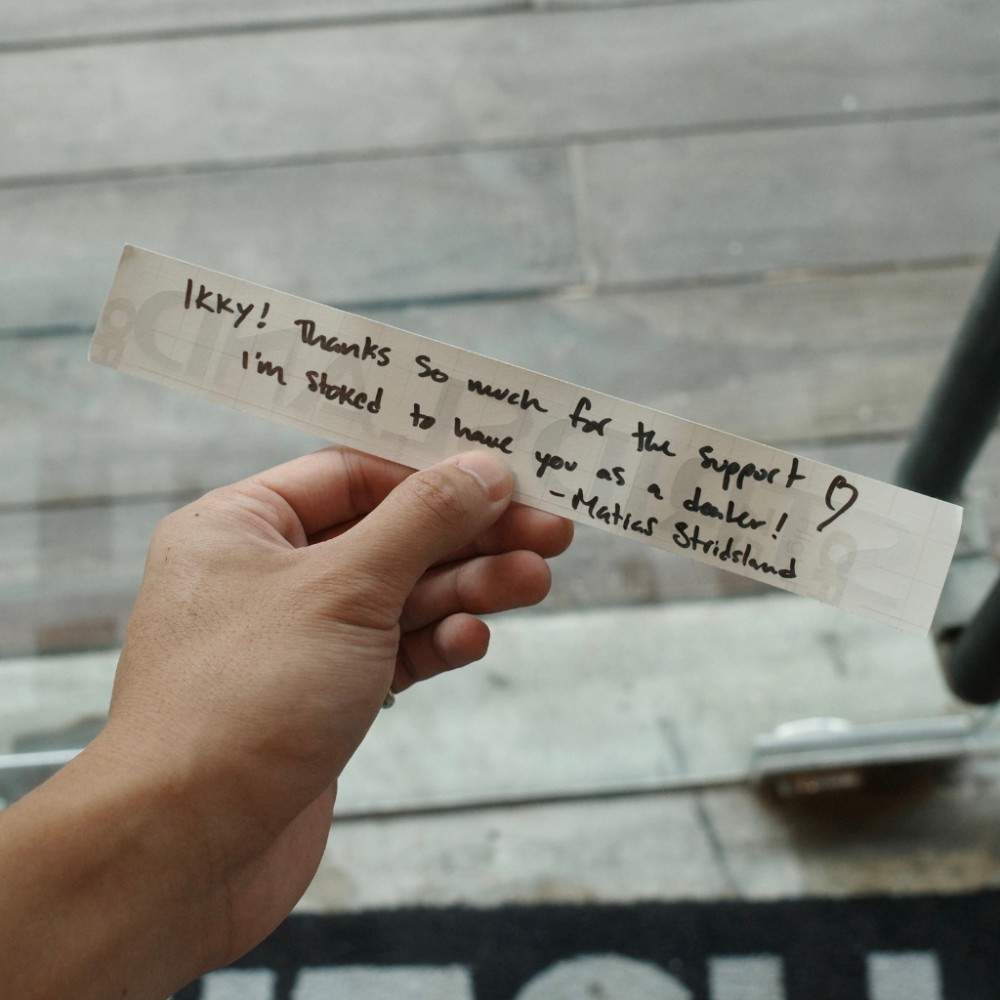 Ikky! Thanks so much for the support ♡
I'm stoked to have you as a dealer!
-Matias Stridsland